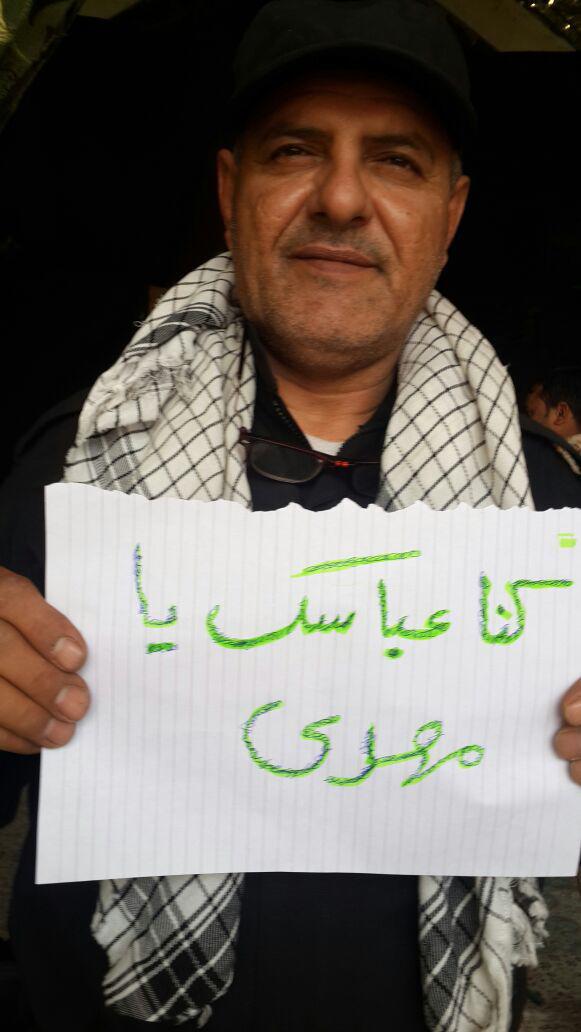 كنا عباسك يا
مهدى